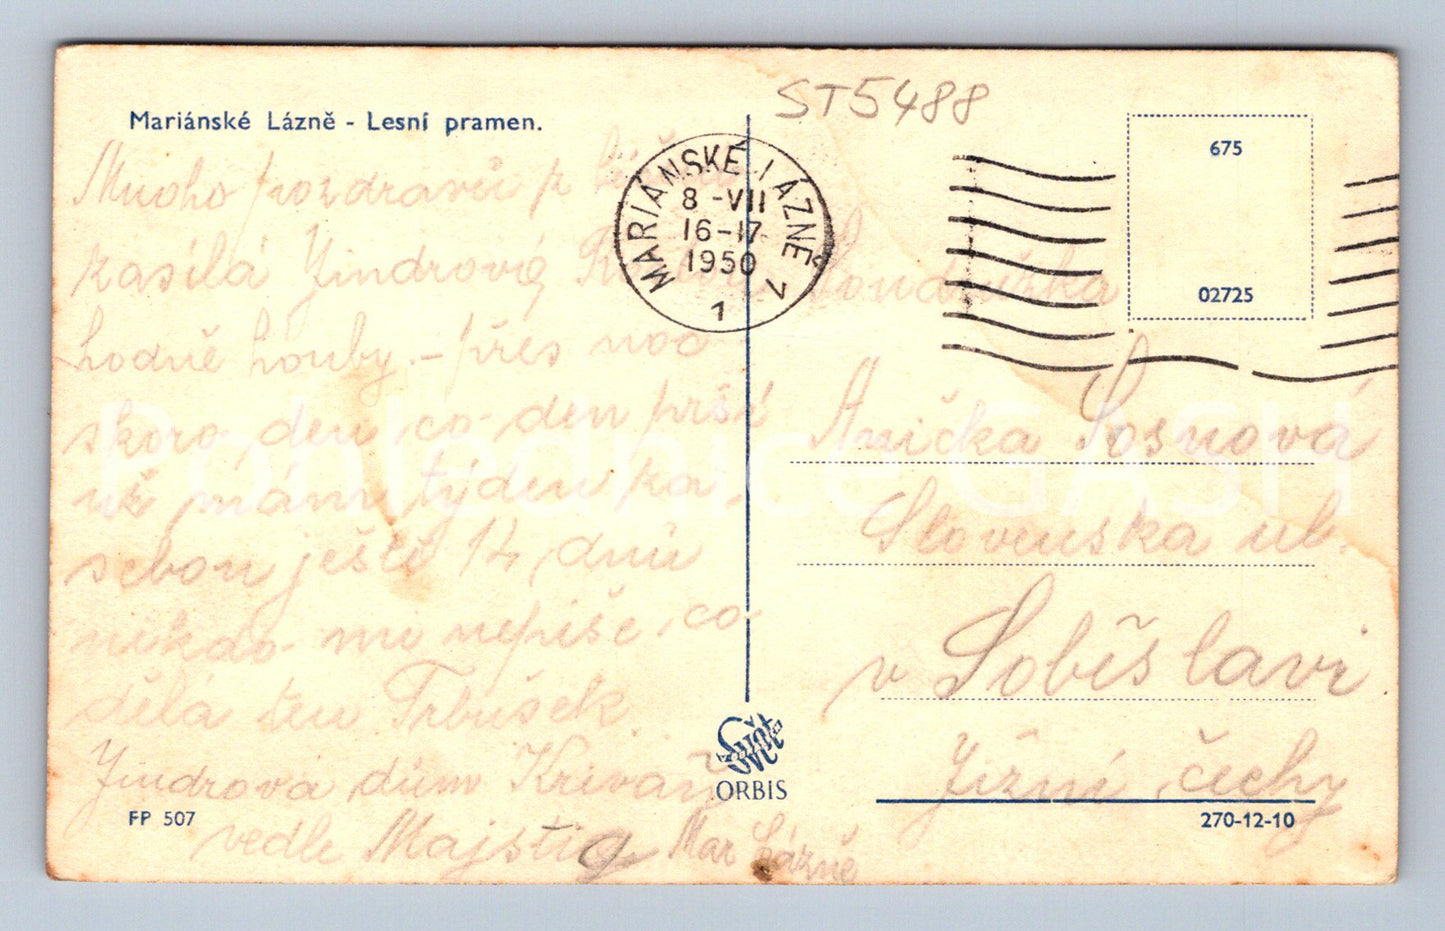 ST5488
Mariánské Lázně - Lesní pramen.
MARIÁNSKÉ LÁZNĚ 7
8 -VII
16-17
1950
1
675
02725
Mnoho pozdravů z
zasílá Jindrová
hodně houby - přes noc
skoro den co den prší
už mám týden za
sebou ještě 14 dnů
nikdo mi nepíše co
dělá ten Trbušek.
Jindrová dům Kriváň
vedle Majstig Mar Lázně
Soudružka
Anička Sosnová
Slovenska ul.
v Soběslavi
Jižní čechy
Pohlednice GASH
Svět
ORBIS
FP 507
270-12-10